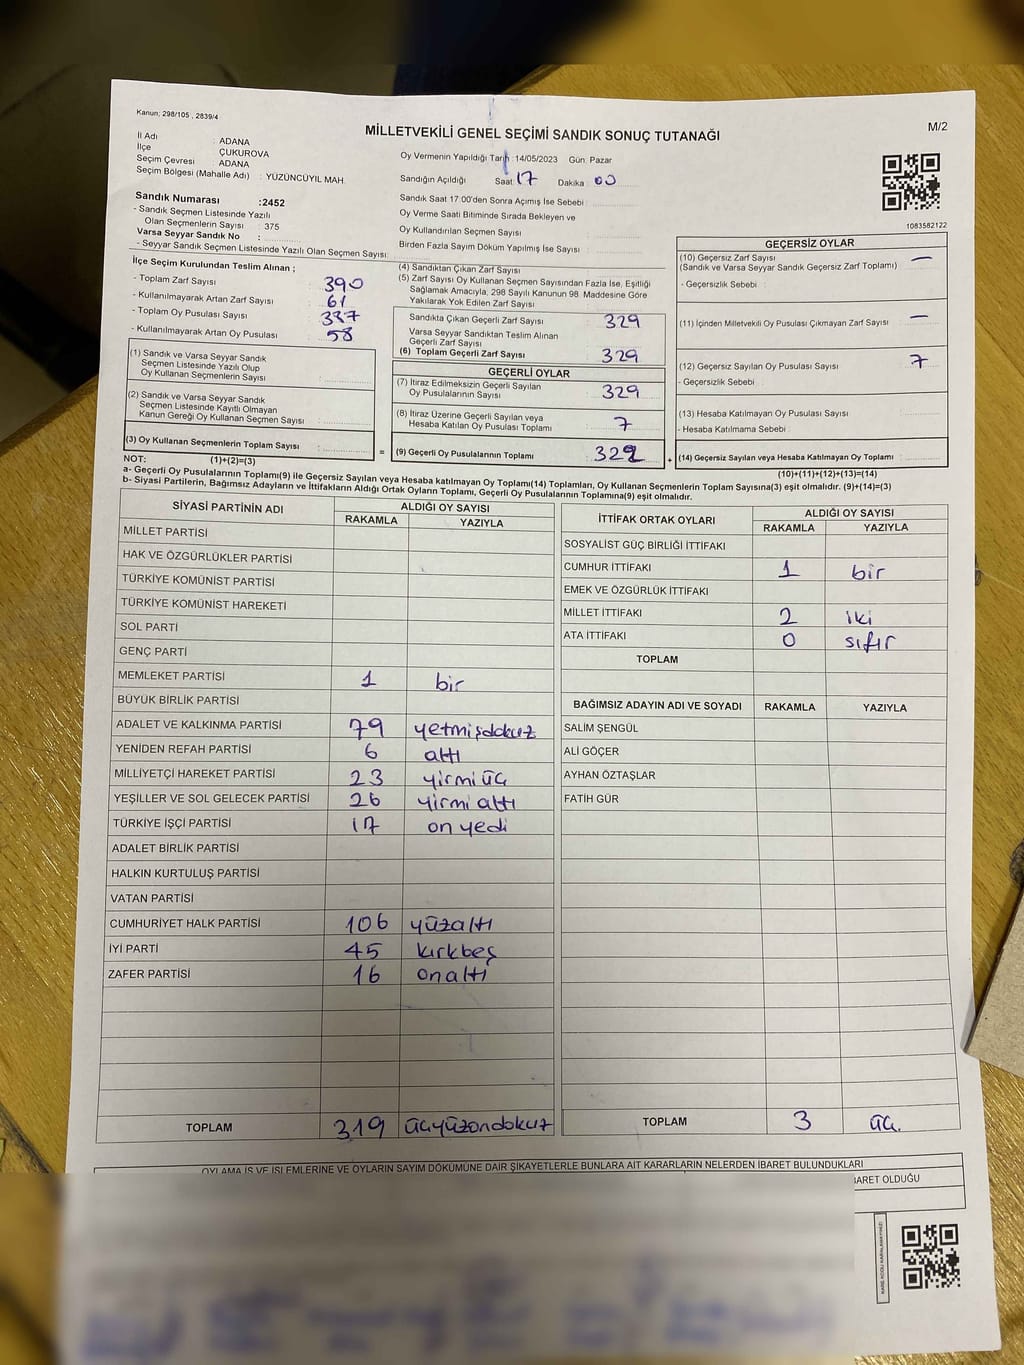 Kanun; 298/105 , 2839/4
MİLLETVEKİLİ GENEL SEÇİMİ SANDIK SONUÇ TUTANAĞI
M/2
İl Adı : ADANA
İlçe : ÇUKUROVA
Seçim Çevresi : ADANA
Seçim Bölgesi (Mahalle Adı) : YÜZÜNCÜYIL MAH.
Oy Vermenin Yapıldığı Tarih :14/05/2023 Gün: Pazar
Sandığın Açıldığı Saat: 17 Dakika : 00
Sandık Saat 17:00'den Sonra Açımış İse Sebebi :
Oy Verme Saati Bitiminde Sırada Bekleyen ve
Oy Kullandırılan Seçmen Sayısı :
Birden Fazla Sayım Döküm Yapılmış İse Sayısı :
Sandık Numarası :2452
- Sandık Seçmen Listesinde Yazılı
Olan Seçmenlerin Sayısı : 375
Varsa Seyyar Sandık No :
- Seyyar Sandık Seçmen Listesinde Yazılı Olan Seçmen Sayısı:
1083582122
İlçe Seçim Kurulundan Teslim Alınan ;
- Toplam Zarf Sayısı : 390
- Kullanılmayarak Artan Zarf Sayısı : 61
- Toplam Oy Pusulası Sayısı : 387
- Kullanılmayarak Artan Oy Pusulası : 58
(1) Sandık ve Varsa Seyyar Sandık
Seçmen Listesinde Yazılı Olup
Oy Kullanan Seçmenlerin Sayısı :
(2) Sandık ve Varsa Seyyar Sandık
Seçmen Listesinde Kayıtlı Olmayan
Kanun Gereği Oy Kullanan Seçmen Sayısı :
(3) Oy Kullanan Seçmenlerin Toplam Sayısı :
(4) Sandıktan Çıkan Zarf Sayısı :
(5) Zarf Sayısı Oy Kullanan Seçmen Sayısından Fazla İse, Eşitliği
Sağlamak Amacıyla, 298 Sayılı Kanunun 98. Maddesine Göre
Yakılarak Yok Edilen Zarf Sayısı :
Sandıkta Çıkan Geçerli Zarf Sayısı : 329
Varsa Seyyar Sandıktan Teslim Alınan
Geçerli Zarf Sayısı :
(6) Toplam Geçerli Zarf Sayısı : 329
GEÇERLİ OYLAR
(7) İtiraz Edilmeksizin Geçerli Sayılan
Oy Pusulalarının Sayısı : 329
(8) İtiraz Üzerine Geçerli Sayılan veya
Hesaba Katılan Oy Pusulası Toplamı : 7
= (9) Geçerli Oy Pusulalarının Toplamı : 322 +
GEÇERSİZ OYLAR
(10) Geçersiz Zarf Sayısı : —
(Sandık ve Varsa Seyyar Sandık Geçersiz Zarf Toplamı)
- Geçersizlik Sebebi :
(11) İçinden Milletvekili Oy Pusulası Çıkmayan Zarf Sayısı : —
(12) Geçersiz Sayılan Oy Pusulası Sayısı : 7
- Geçersizlik Sebebi :
(13) Hesaba Katılmayan Oy Pusulası Sayısı :
- Hesaba Katılmama Sebebi :
(14) Geçersiz Sayılan veya Hesaba Katılmayan Oy Toplamı :
NOT: (1)+(2)=(3)
(10)+(11)+(12)+(13)=(14)
a- Geçerli Oy Pusulalarının Toplamı(9) ile Geçersiz Sayılan veya Hesaba katılmayan Oy Toplamı(14) Toplamları, Oy Kullanan Seçmenlerin Toplam Sayısına(3) eşit olmalıdır. (9)+(14)=(3)
b- Siyasi Partilerin, Bağımsız Adayların ve İttifakların Aldığı Ortak Oyların Toplamı, Geçerli Oy Pusulalarının Toplamına(9) eşit olmalıdır.
SİYASİ PARTİNİN ADI ALDIĞI OY SAYISI
RAKAMLA YAZIYLA
MİLLET PARTİSİ
HAK VE ÖZGÜRLÜKLER PARTİSİ
TÜRKİYE KOMÜNİST PARTİSİ
TÜRKİYE KOMÜNİST HAREKETİ
SOL PARTİ
GENÇ PARTİ
MEMLEKET PARTİSİ 1 bir
BÜYÜK BİRLİK PARTİSİ
ADALET VE KALKINMA PARTİSİ 79 yetmişdokuz
YENİDEN REFAH PARTİSİ 6 altı
MİLLİYETÇİ HAREKET PARTİSİ 23 yirmi üç
YEŞİLLER VE SOL GELECEK PARTİSİ 26 yirmi altı
TÜRKİYE İŞÇİ PARTİSİ 17 on yedi
ADALET BİRLİK PARTİSİ
HALKIN KURTULUŞ PARTİSİ
VATAN PARTİSİ
CUMHURİYET HALK PARTİSİ 106 yüzaltı
İYİ PARTİ 45 kırkbeş
ZAFER PARTİSİ 16 onaltı
TOPLAM 319 üçyüzondokuz
İTTİFAK ORTAK OYLARI ALDIĞI OY SAYISI
RAKAMLA YAZIYLA
SOSYALİST GÜÇ BİRLİĞİ İTTİFAKI
CUMHUR İTTİFAKI 1 bir
EMEK VE ÖZGÜRLÜK İTTİFAKI
MİLLET İTTİFAKI 2 iki
ATA İTTİFAKI 0 sıfır
TOPLAM
BAĞIMSIZ ADAYIN ADI VE SOYADI RAKAMLA YAZIYLA
SALİM ŞENGÜL
ALİ GÖÇER
AYHAN ÖZTAŞLAR
FATİH GÜR
TOPLAM 3 üç.
OYLAMA İŞ VE İŞLEMLERİNE VE OYLARIN SAYIM DÖKÜMÜNE DAİR ŞİKAYETLERLE BUNLARA AİT KARARLARIN NELERDEN İBARET BULUNDUKLARI
BARET OLDUĞU